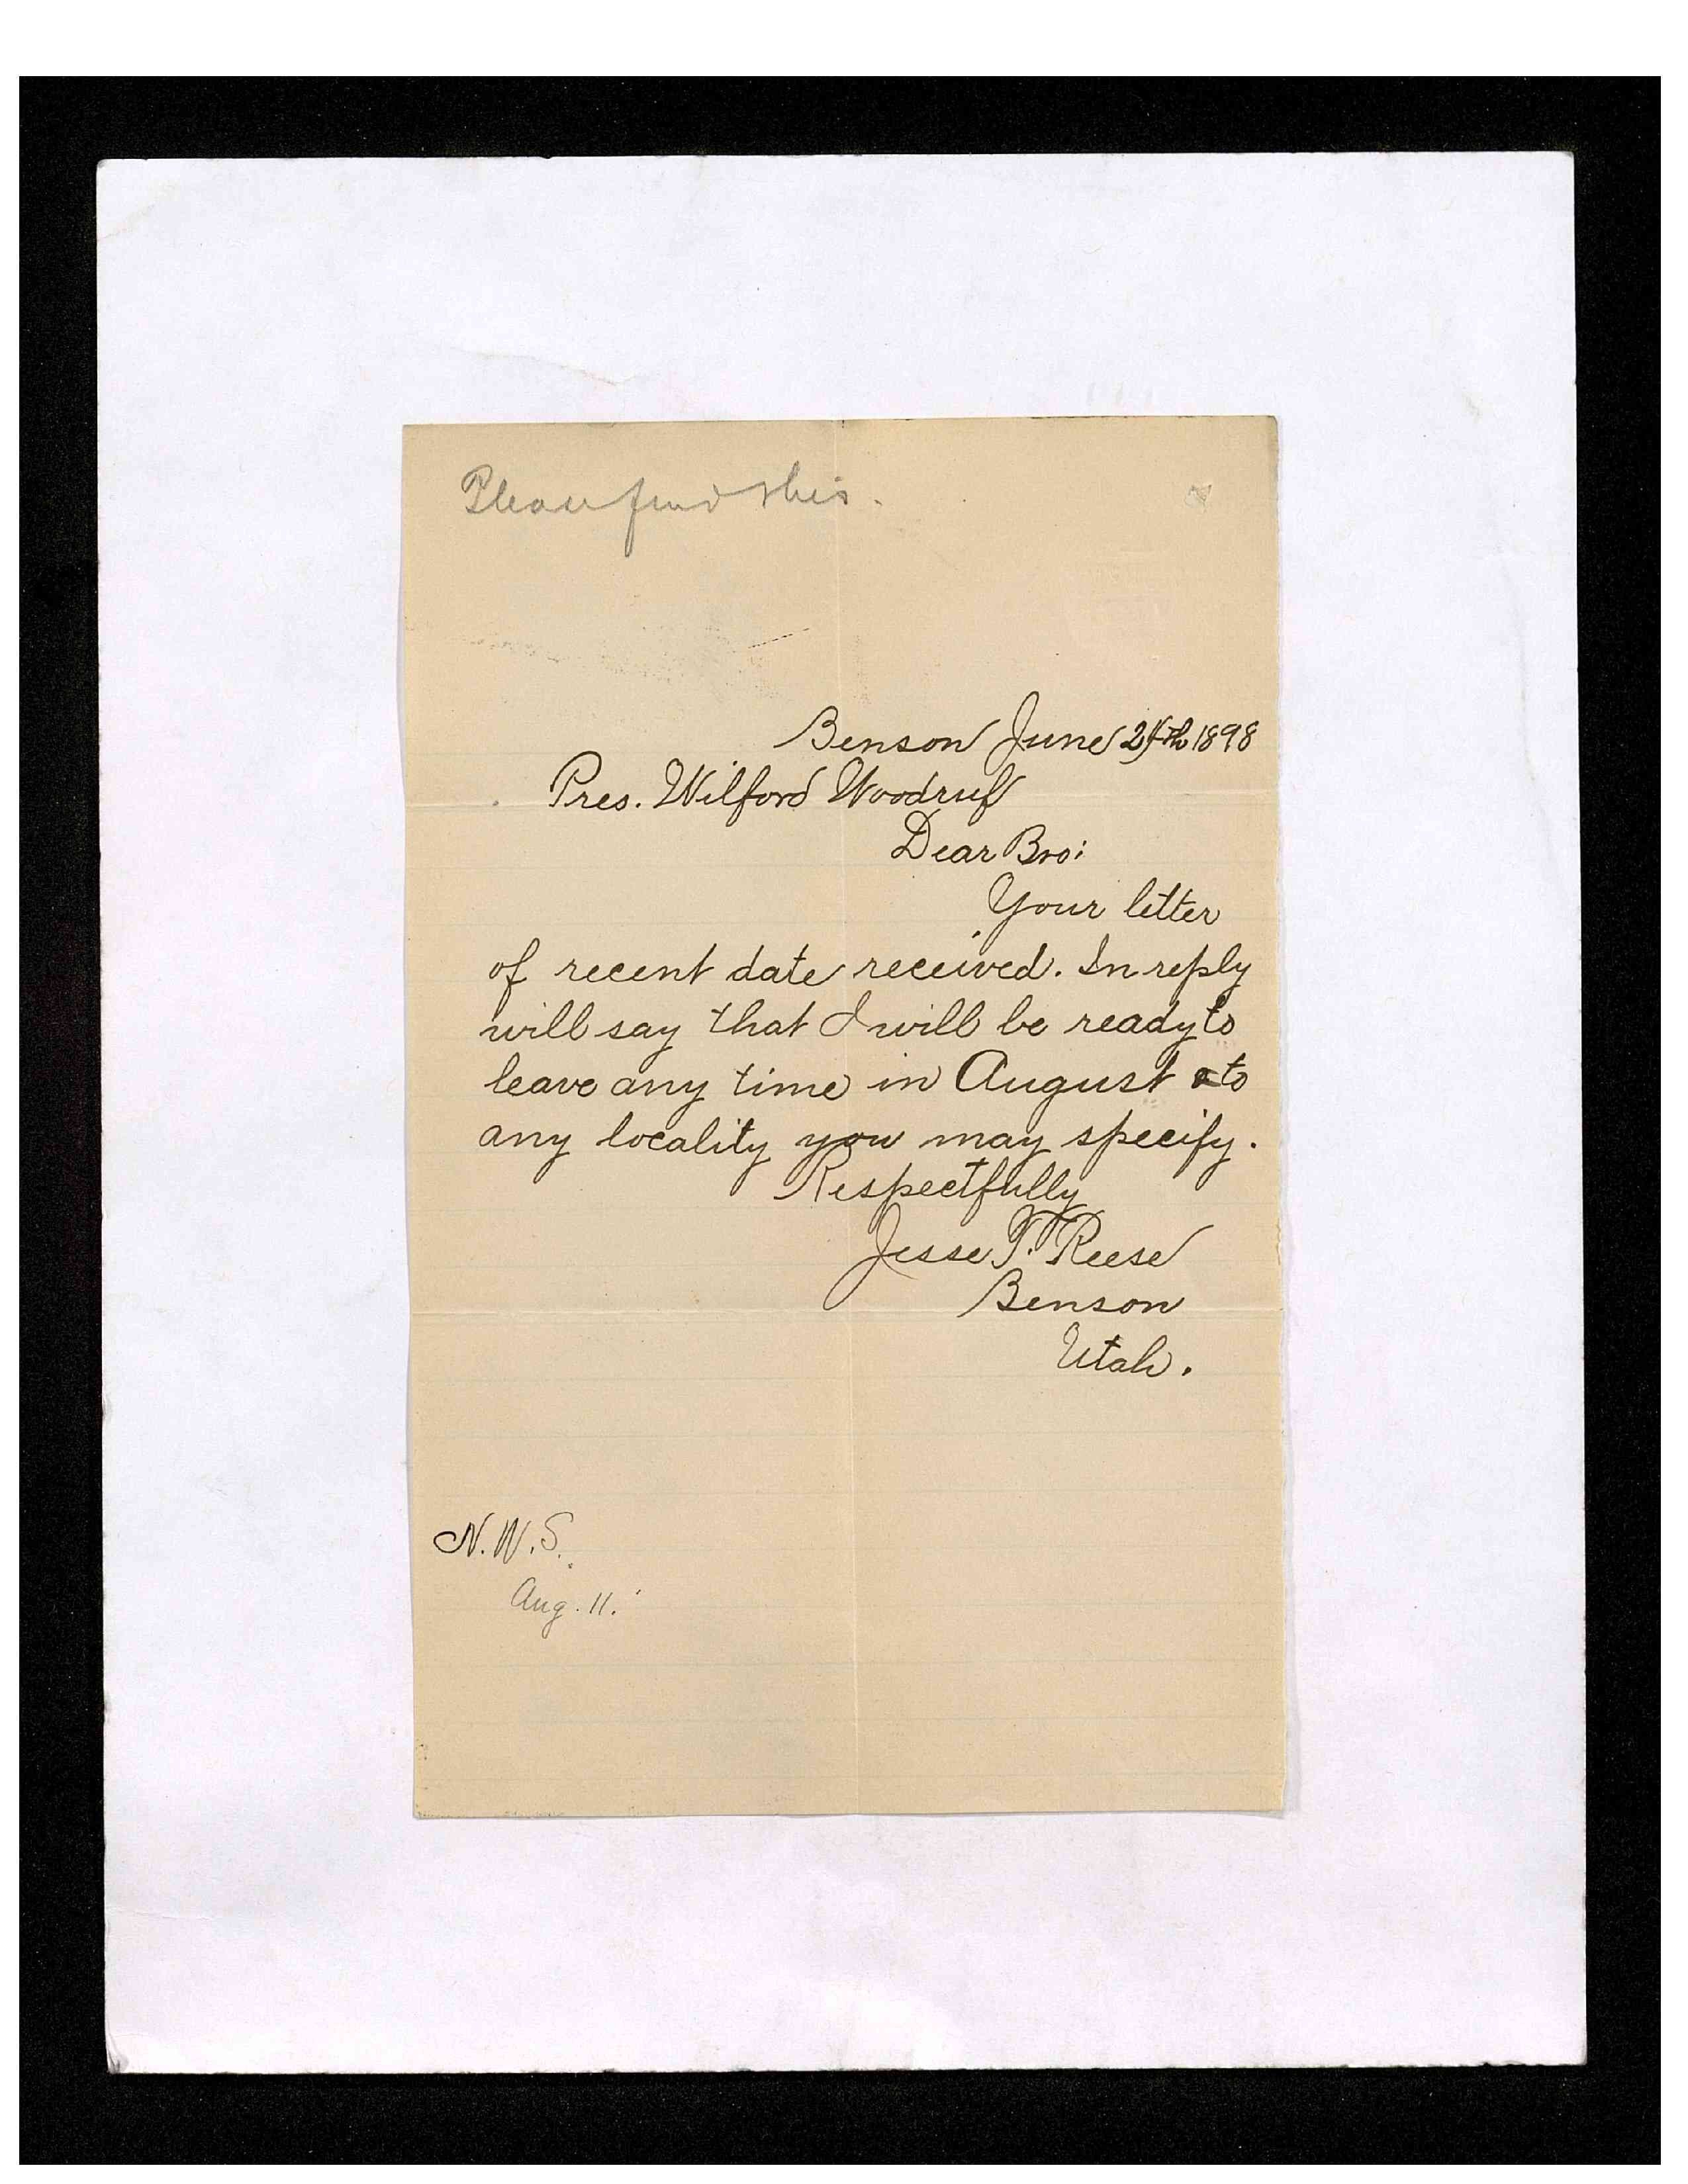 Please find this.
Benson June 24th 1898
Pres. Wilford Woodruf
Dear Bro:
Your letter
of recent date received. In reply
will say that I will be ready to
leave any time in August to
any locality you may specify.
Respectfully
Jesse T. Reese
Benson
Utah.
N.W.S.
Aug. 11.